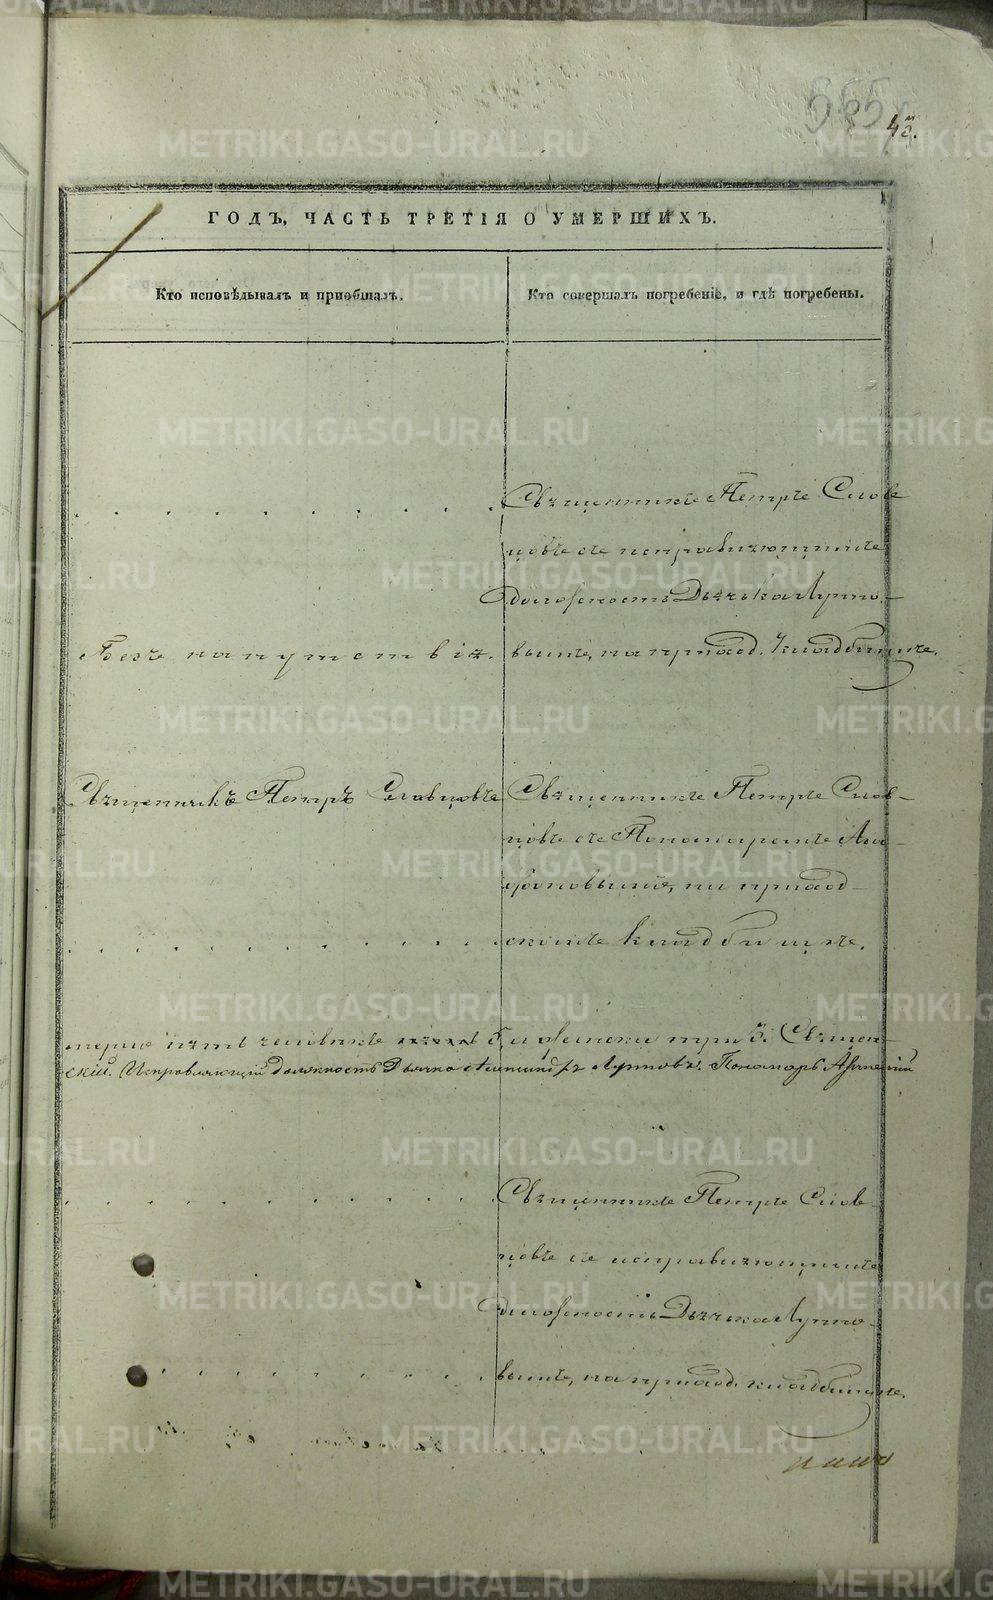 555
42.
ГОДЪ, ЧАСТЬ ТРЕТІЯ О УМЕРШИХЪ.
Кто исповѣдывалъ и пріобщалъ.
Кто совершалъ погребеніе, и гдѣ погребены.
Священникъ Петръ Слов
цовъ съ исправляющимъ
должность Дьячка Луппо-
Безъ напутствія.
вымъ, на приход. кладбищѣ.
Священникъ Петръ Словцовъ
Священникъ Петръ Слов-
цовъ съ Пономаремъ
на приход-
скомъ кладбищѣ.
пять человѣкъ
Священ-
скій. Исправляющій должность Дьячка Александръ Лупповъ. Пономарь
Священникъ Петръ Слов-
цовъ съ исправляющимъ
должность Дьячка Луппо-
вымъ, на приход. кладбищѣ.
METRIKI.GASO-URAL.RU